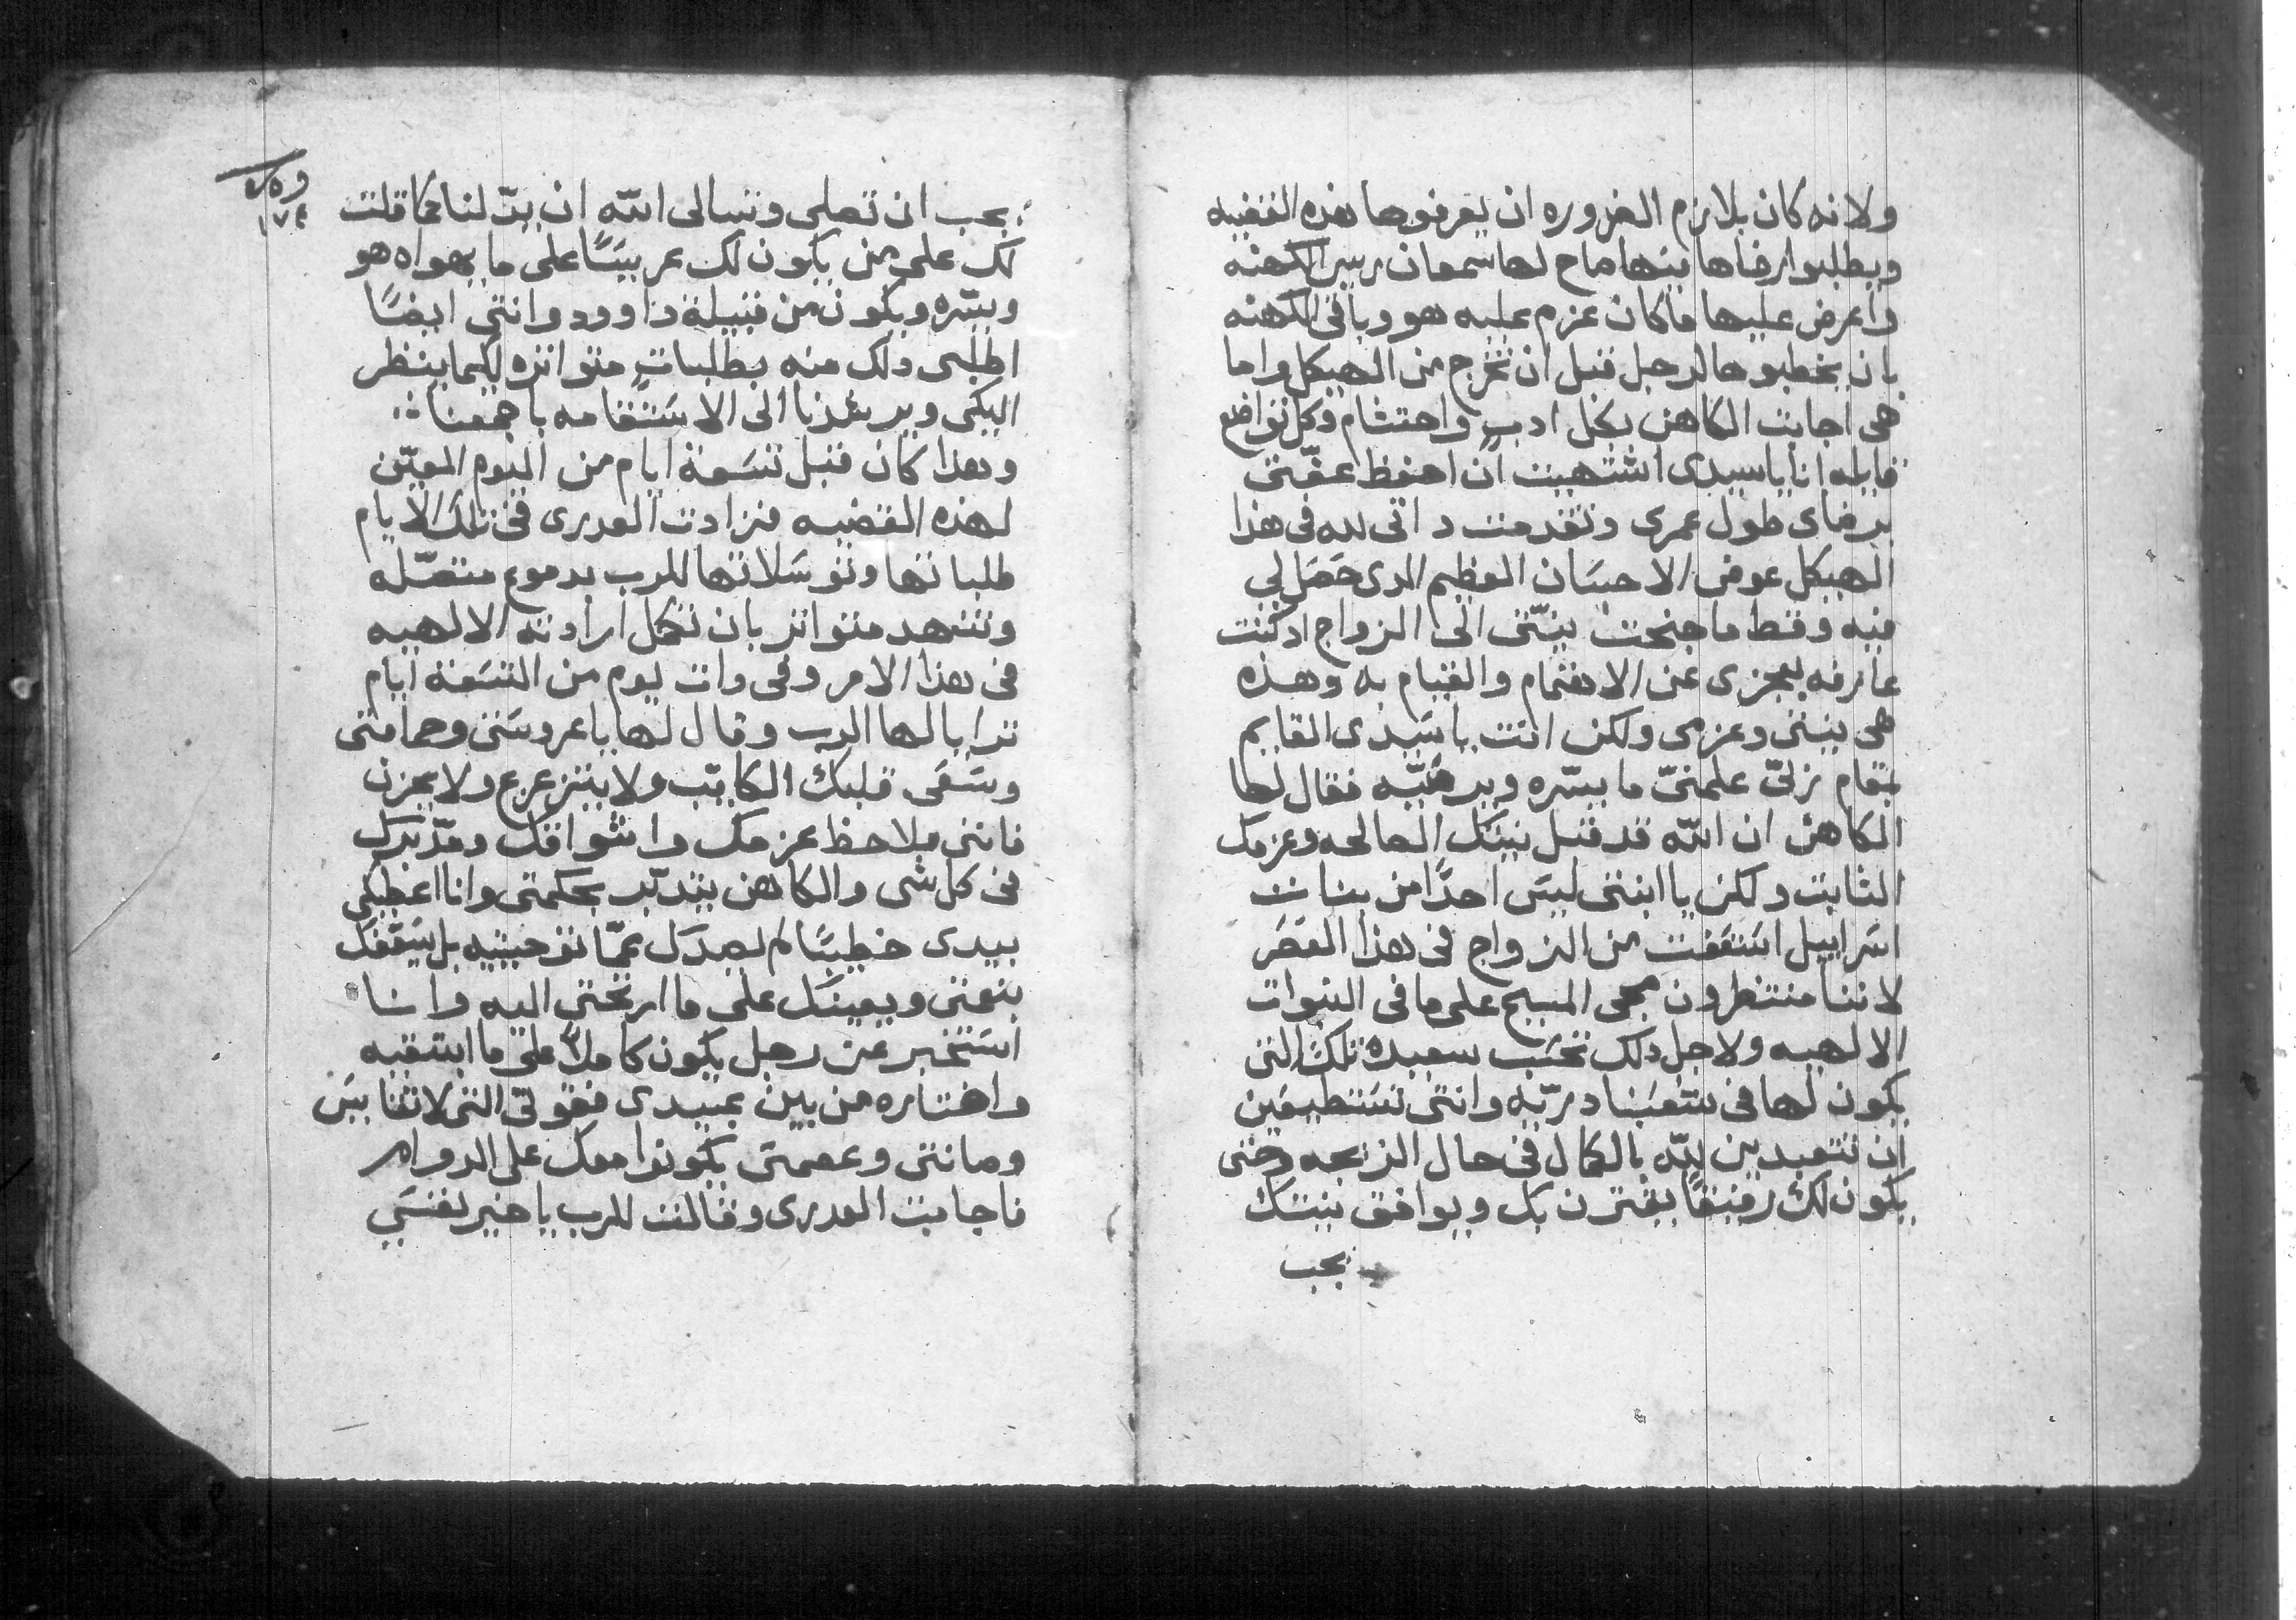 ولانه كان بلازم الضروره ان يعرفوها هذه القضيه
ويطلبوا رضاها فيها صاح لها سمعان ريس الكهنه
واعرض عليها ما كان عزم عليه هو وباقى الكهنه
بان يخطبوها لرجل قبل ان تخرج من الهيكل واما
هى اجابت الكاهن بكل ادب واحتشام وكل تواضع
قايله انا ياسيدى اشتهيت ان احفظ عفتى
برضاى طول عمرى وتقدمت داتى لله فى هذا
الهيكل عوض الاحسان العظيم الدى حصل لى
فيه وقط ما جنحت نيتى الى الزواج ادكنت
عارفه بعجزى عن الاهتمام والقيام به وهذه
هى نيتى وعزمى ولكن انت ياسيدى القايم
بمقام نزلى علمنى ما يسره ويرضيه فقال لها
الكاهن ان الله قد قبل نيتك الصالحه وعزمك
الثابت ولكن يا ابنتى ليس احدًا من بنات
اسراييل استعفت من الزواج فى هذا العصر
لاننا منتظرون مجى المسيح على ما فى النبوات
الالهيه ولاجل دلك تحسب سعيده تلك التى
يكون لها فى شعبنا دريه وانتى تستطيعين
ان تتعبدين لله بالكمال فى حال الزيجه وحتى
يكون لك رفيقًا يقترن بك ويوافق نيتك
يجب
يجب ان تصلى وتسالى الله ان يدلنا كما قلت
لك على من يكون لك عريسًا على ما يهواه هو
ويسره ويكون من قبيلة داوود وانتى ايضًا
اطلبى دلك منه بطلبات متواتره لكيما ينظر
اليكى ويرشدنا الى الاستقامه باجمعنا
وهذا كان قبل تسعة ايام من اليوم المعين
لهذه القضيه فزادت العدرى فى تلك الايام
طلباتها وتوسلاتها للرب بدموع متصله
وتنهد متواتر بان تكمل ارادته الالهيه
فى هذا الامر وفى دات يوم من التسعة ايام
ترايا لها الرب وقال لها ياعروستى وحمامتى
وسعى قلبك الكايب ولا يتزعزع ولا يحزن
فاننى ملاحظ عزمك واشواقك ومدبرك
فى كل شى والكاهن يتدبر بحكمتى وانا اعطيكى
بيدى خطيبًا لم يصدك عما توخيتيه بل يسعفك
بنعمتى ويعينك على ما ارتختى اليه وانا
استخير عن رجل يكون كاملاً على ما ابتغيه
واختاره من بين عبيدى فقوتى التى لا تقايس
وصانتى وعصمتى يكونوا معك على الدوام
فاجابت العدرى وقالت للرب ياخير نفسى